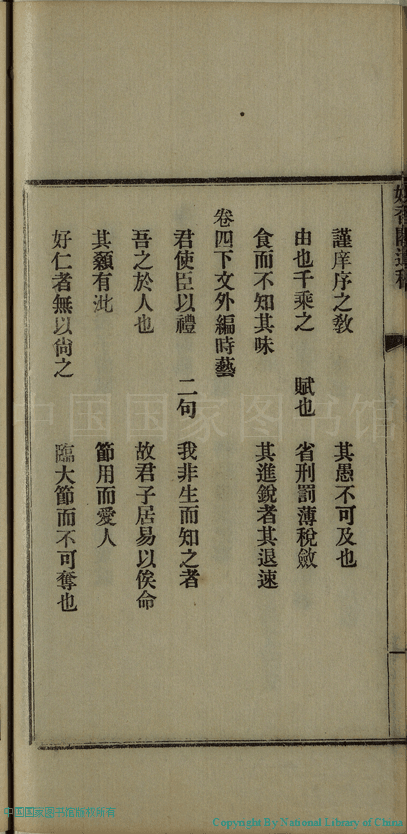 謹庠序之敎　其愚不可及也
由也千乘之　賦也　省刑罰薄稅斂
食而不知其味　其進銳者其退速
卷四下文外編時藝
君使臣以禮　二句　我非生而知之者
吾之於人也　故君子居易以俟命
其顙有泚　節用而愛人
好仁者無以尙之　臨大節而不可奪也
中国国家图书馆
中国国家图书馆版权所有
Copyright By National Library of China